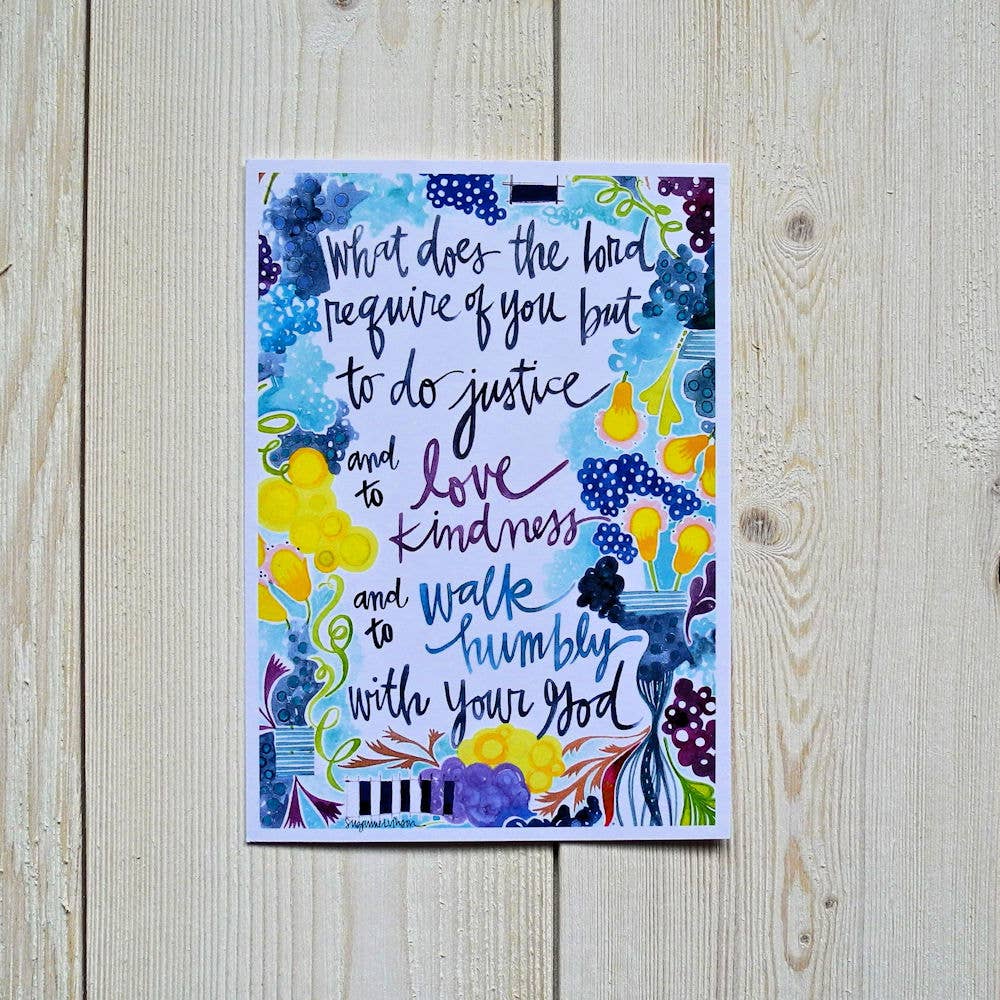 what does the lord
require of you but
to do justice
and to love
kindness
and to walk
humbly
with your god